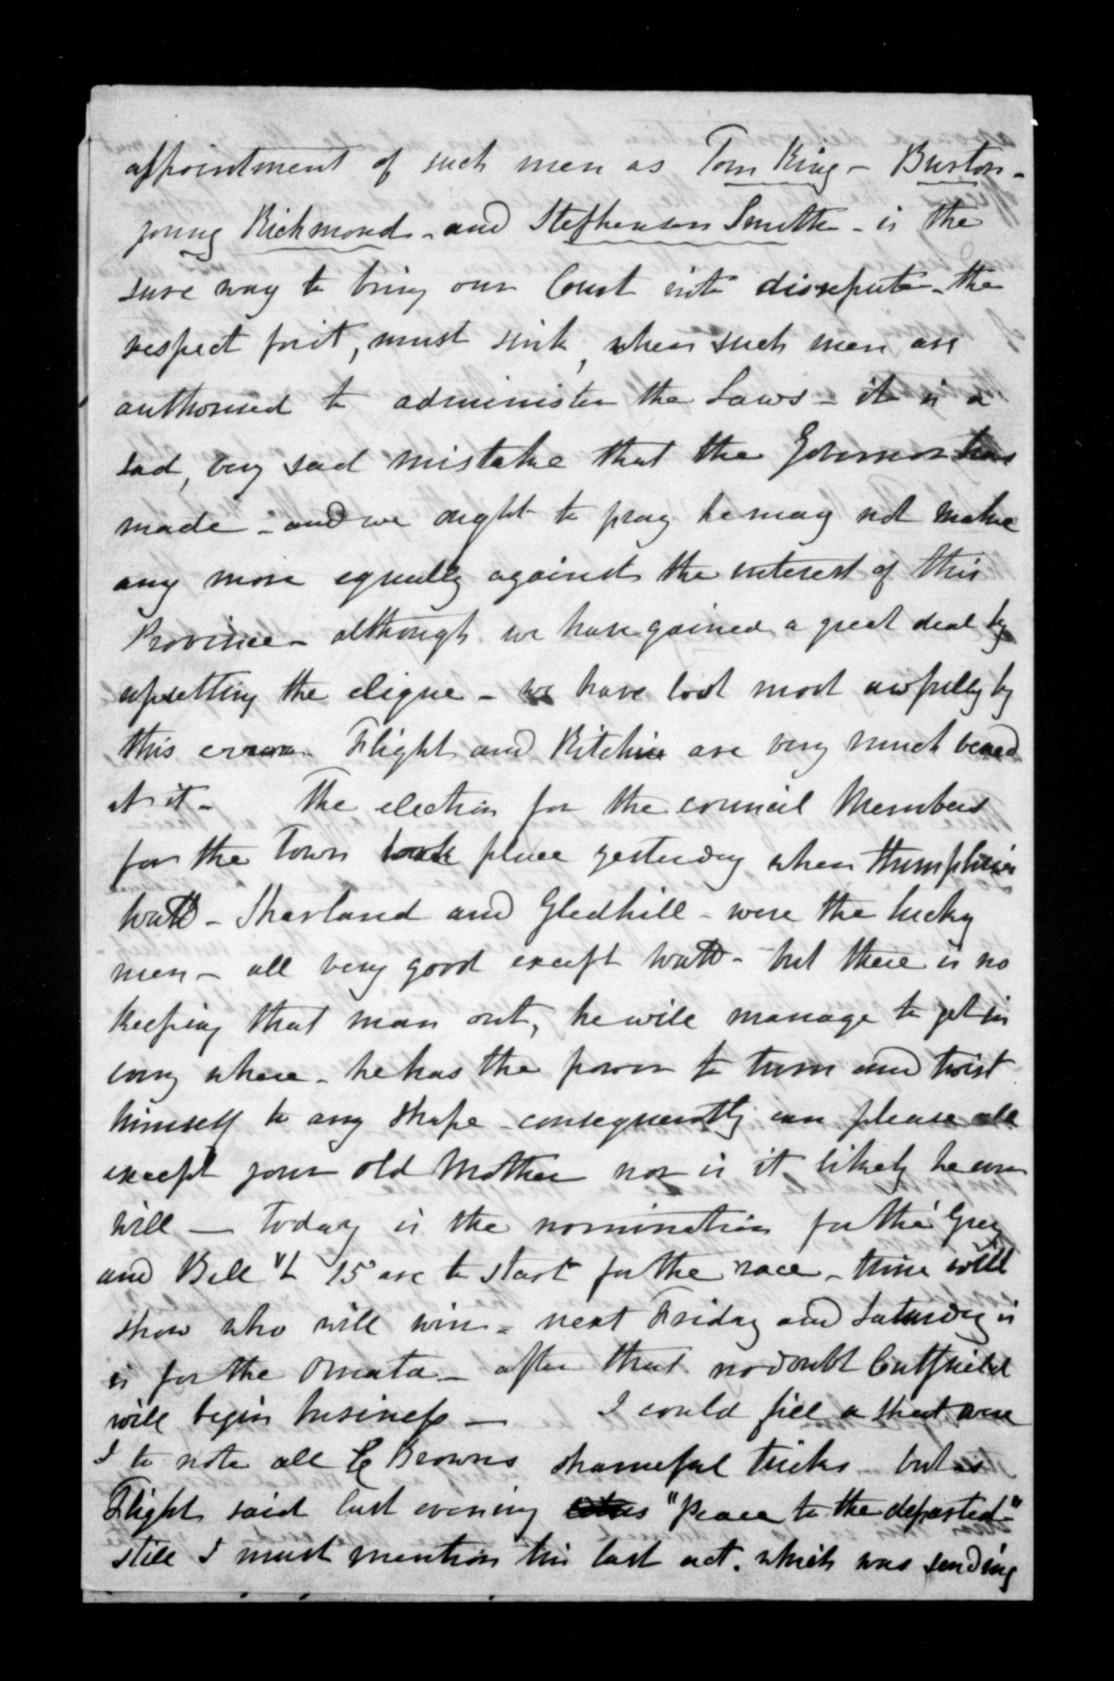 appointment of such men as Tom King - Burton -
young Richmond - and Stephenson Smith - is the
sure way to bring our Court into disrepute - the
respect for it, must sink, when such men are
authorised to administer the Laws - it is a
sad, very sad mistake that the Governor has
made - and we ought to pray he may not make
any more equally against the interest of this
Province - although we have gained a great deal by
upsetting the clique - we have lost most awfully by
this error. Flight and Ritchie are very much vexed
at it - The election for the council Members
for the Town took place yesterday when Humphries
Watt - Sharland and Gledhill - were the lucky
men - all very good except Watt - but there is no
keeping that man out, he will manage to get in
any where - he has the power to turn and twist
himself to any shape - consequently can please all
except your old Mother nor is it likely he ever
will - today is the nomination for the "Grey
and Bell" 15 are to start for the race - time will
show who will win - next Friday and Saturday is
is for the Omata - after that no doubt Cutfield
will begin business - I could fill a sheet were
I to note all C Browns shameful tricks but as
Flight said last evening "Peace to the departed"
still I must mention his last act. which was sending